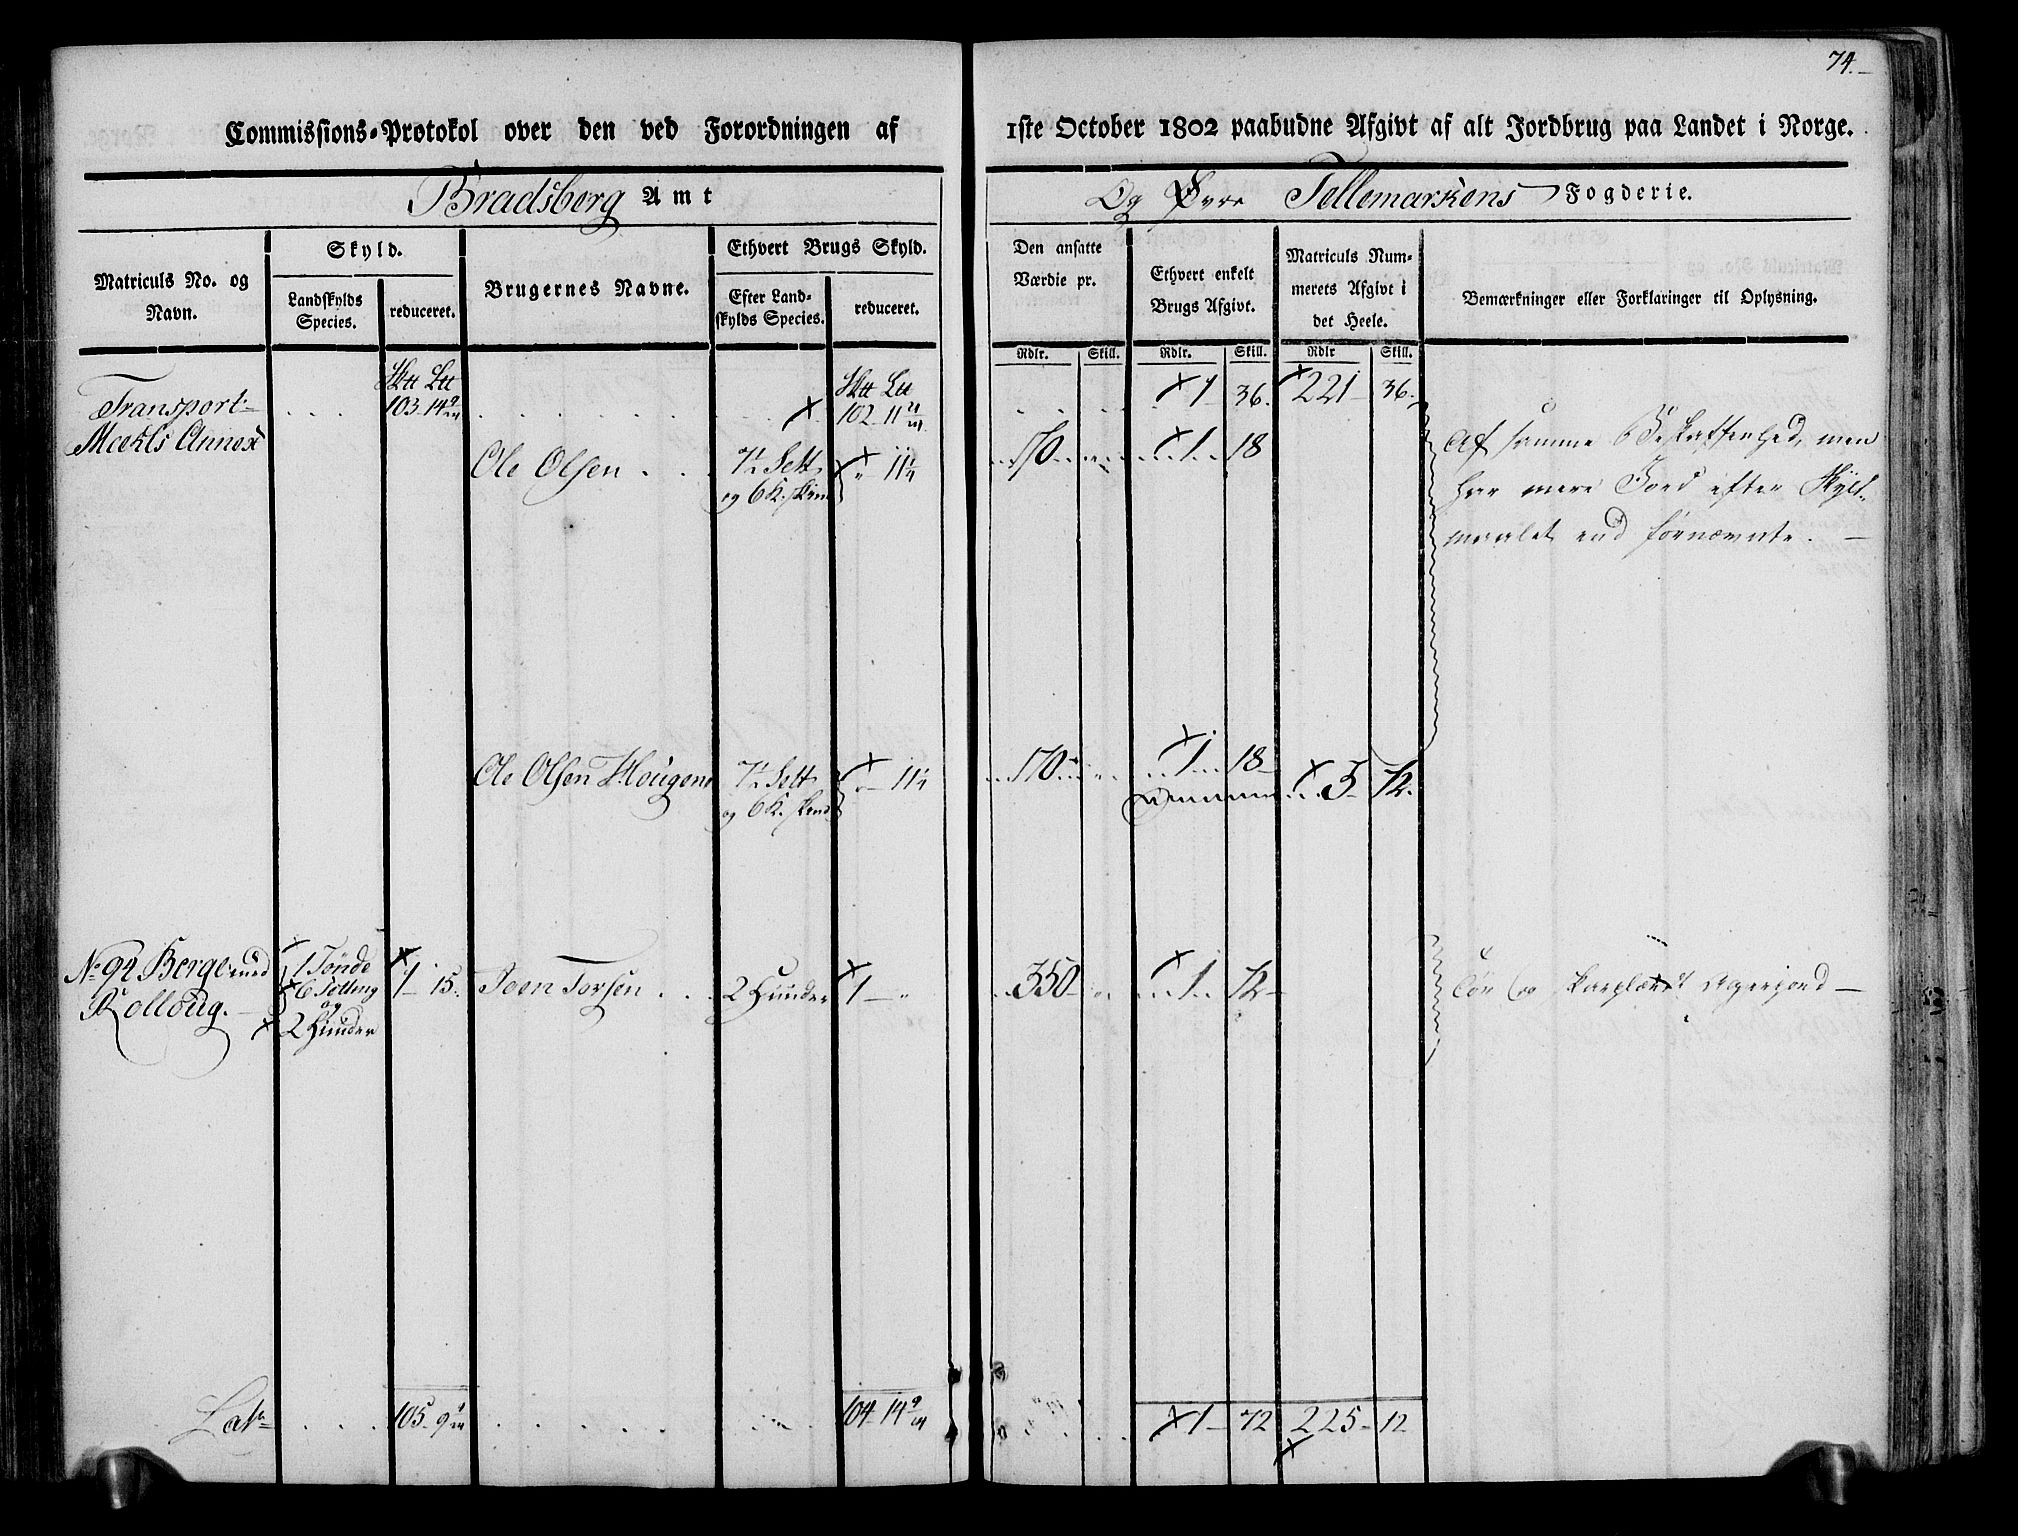 74.
Commissions-Protokol over den ved Forordningen af 1ste October 1802 paabudne Afgivt af alt Jordbrug paa Landet i Norge.
Bradsberg Amt Og Øvre Tellemarkens Fogderie.
Matriculs No. og Navn.
Skyld.
Landskylds Species.
reduceret.
Brugernes Navne.
Ethvert Brugs Skyld.
Efter Landskylds Species.
reduceret.
Den ansatte Værdie pr.
Ethvert enkelt Brugs Afgivt.
Matriculs Nummerets Afgivt i det Heele.
Bemærkninger eller Forklaringer til Oplysning.
Rdlr. Skill. Rdlr. Skill. Rdlr Skill.
Transport 103. 14 102. 11 1 36. 221 36.
Moelts Annex
Ole Olsen 7½ Sett og 6 K. skind 11¼ 170 1 18
Af samme Beskaffenhed, men
har mere Jord efter Skyld-
maalet end fornævnte.
Ole Olsen Hougen 7½ Sett og 6 K. skind 11¼ 170 1 18 3 72.
No. 92 Berge med Kolloug.
1 Tønde
6 Setting
og
2 Hunder
1 15.
Joen Torsen 2 Hunder 1 350 1 72
Tør og skarplændt Agerjord
Lats 105. 9 104 14 1 72 225 12